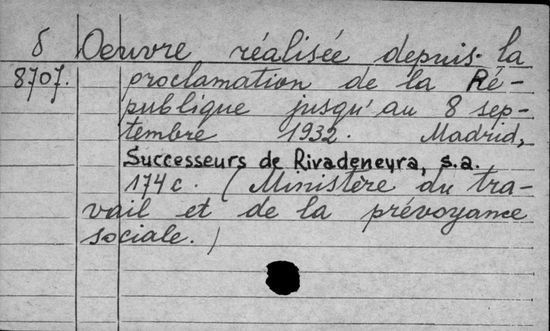 δ Oeuvre réalisée depuis la
8707. proclamation de la Ré-
publique jusqu'au 8 sep-
tembre 1932. Madrid,
Successeurs de Rivadeneyra, s.a.
174 c. (Ministère du tra-
vail et de la prévoyance
sociale.)